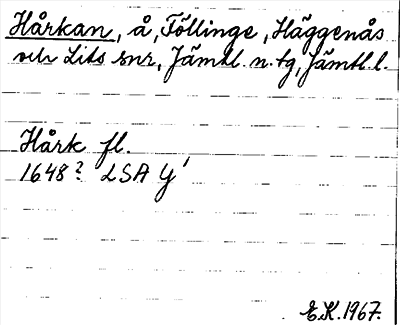 Hårkan, å, Föllinge, Häggenås
och Lits snr, Jämtl. n. tg, Jämtl. l.
Hårk fl.
1648? LSA Y'
E.K. 1967.